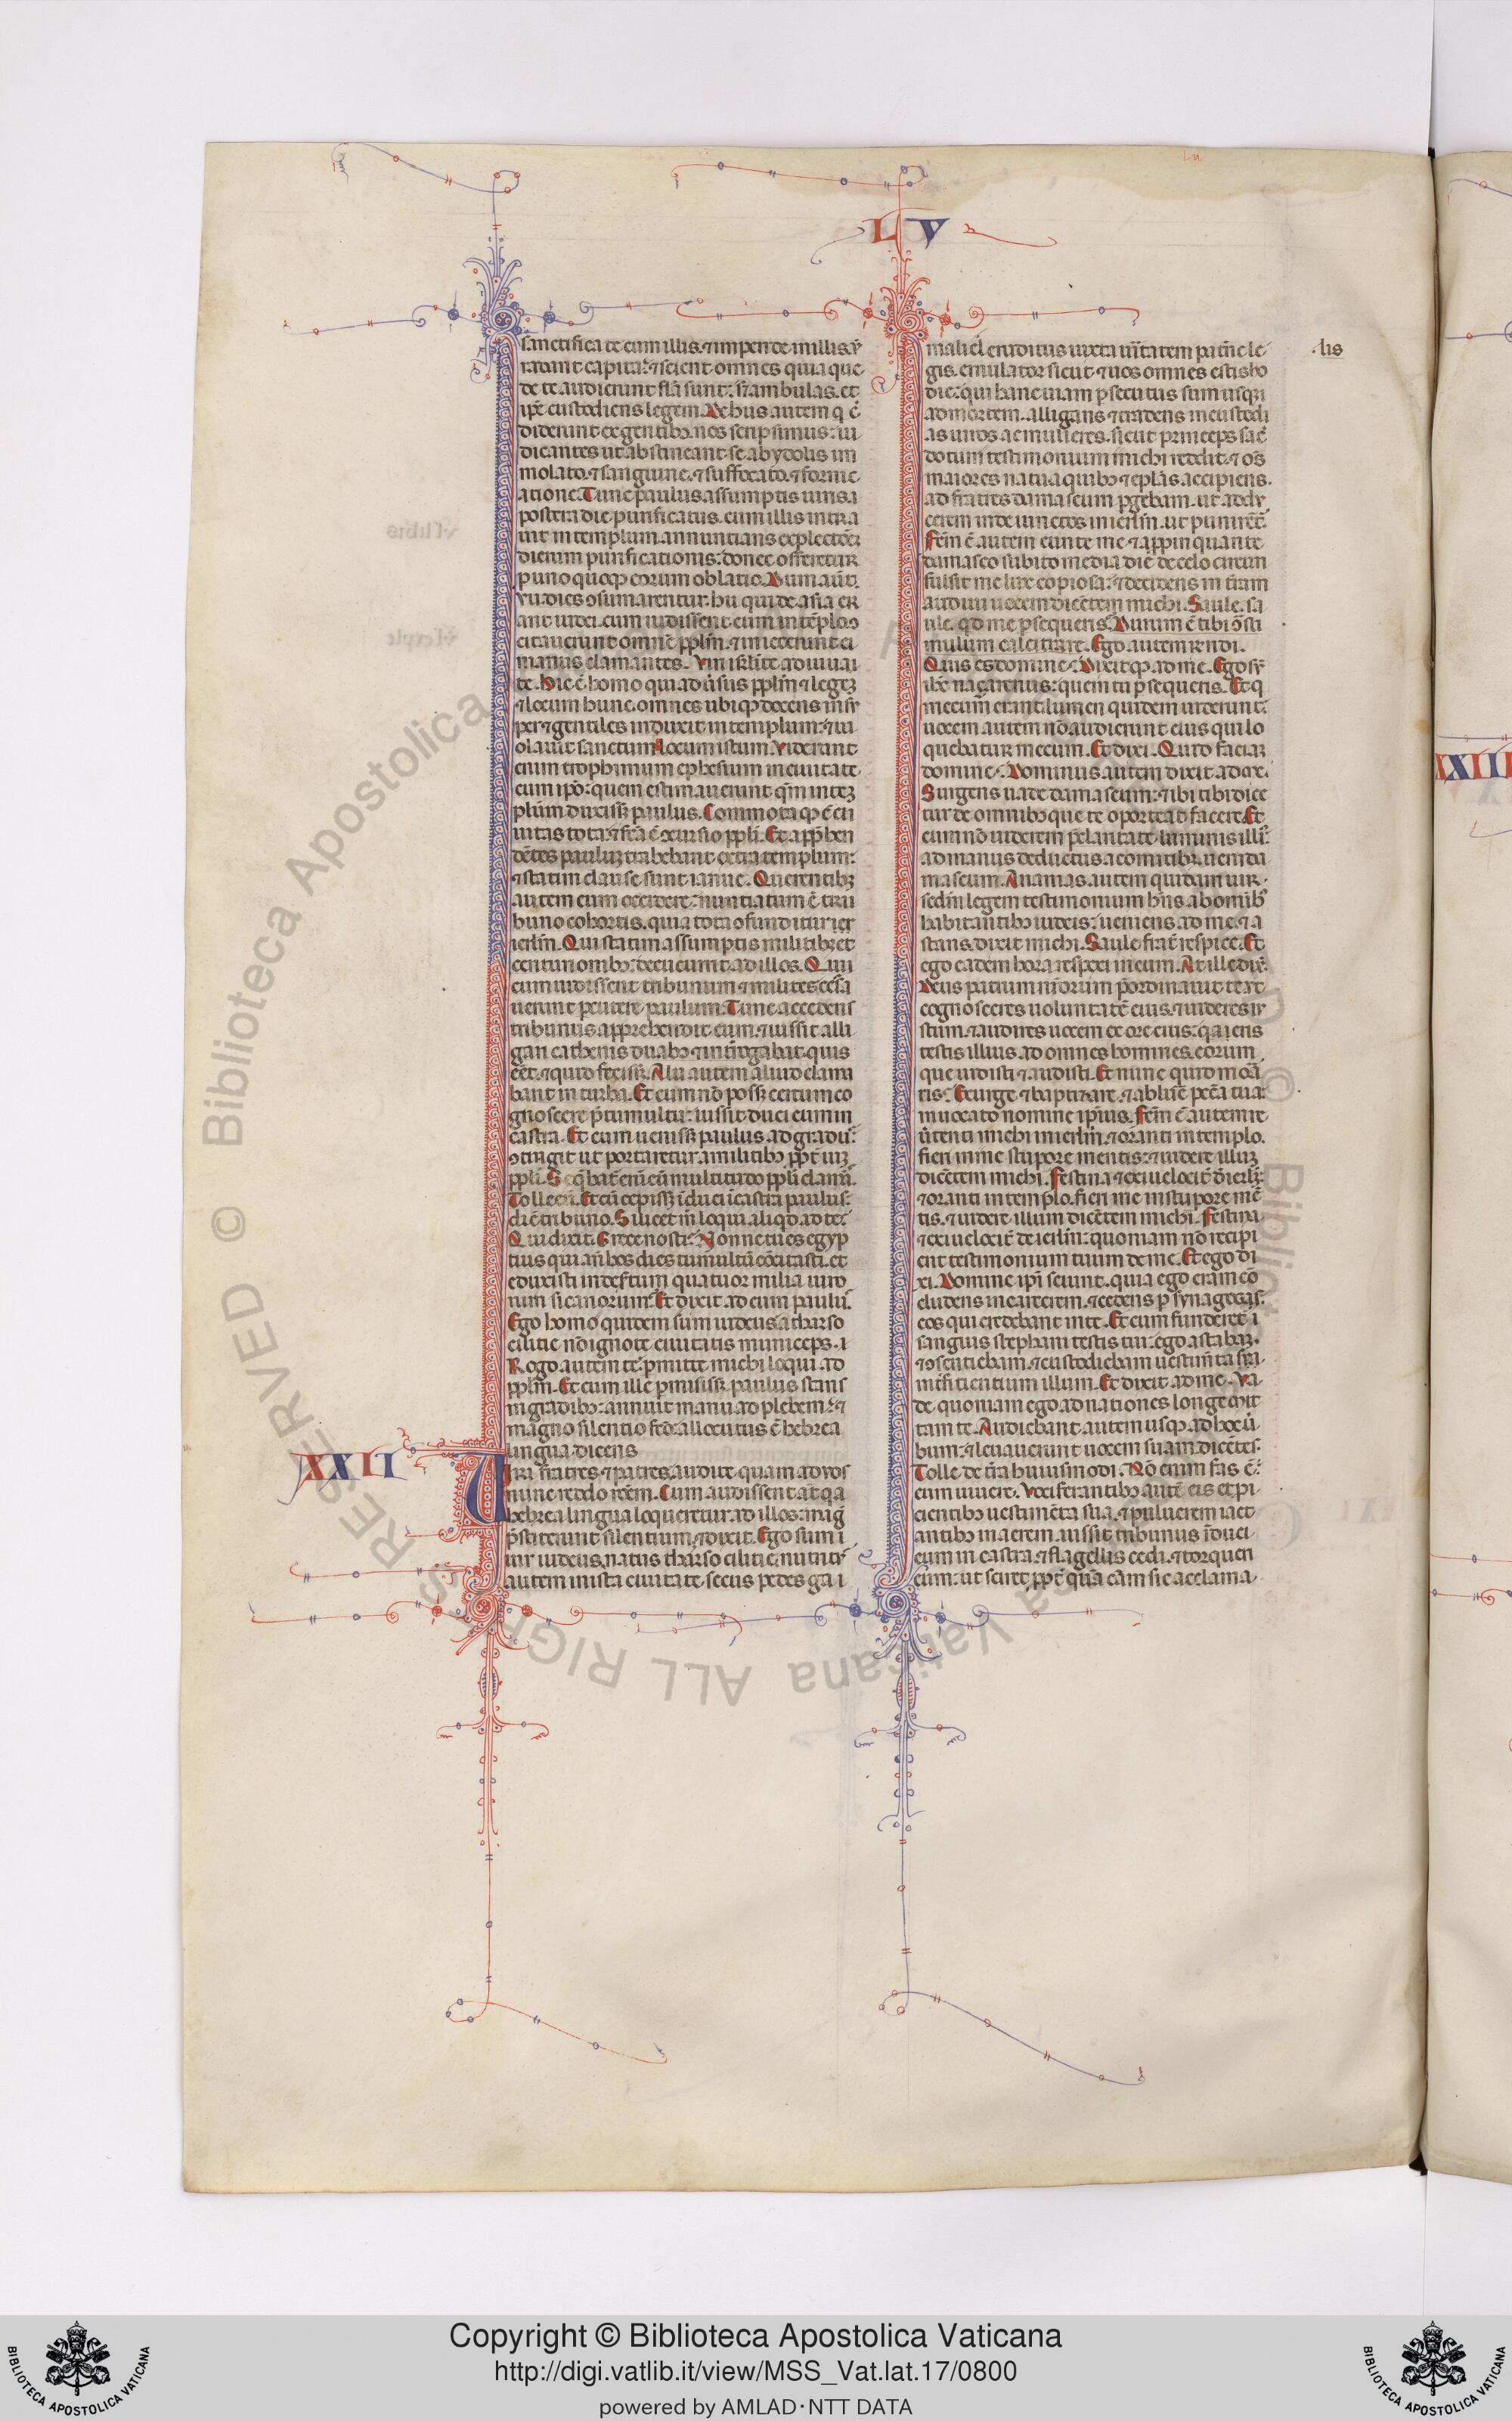 LV
sanctifica te cum illis. ⁊ impende in illis. ut
radant capita: ⁊ scient omnes quia que
de te audierunt fĺa sunt: ſʒ ambulas. et
ipe custodiens legem. De hiis autem q̇ ċ
diderunt ex gentibȝ. nos scripsimus: iu
dicantes ut abstineant se ab ydolis im
molato. ⁊ sanguine. ⁊ suffocato. ⁊ fornic
atione. Tunc paulus. assumptis uiris. a
postera die. purificatus. cum illis intra
uit in templum. annuntians expletōeʒ
dierum purificationis: donec offerretur
p uno quoqȝ eorum oblatio. Dum aūt.
vii. dies ↄsumarentur. hii qui de asia er
ant iudei. cum uidissent eum in tēplo. ↄ
citauerunt omnē pplm̄. ⁊ iniecerunt ei
manus clamantes. Viri isrlite adiuua
te. Hic ē homo qui adusus pplm̄ ⁊ legeʒ
⁊ locum hunc. omnes ubiqȝ docens insr
per ⁊ gentiles induxit in templum: ⁊ ui
olauit sanctum locum istum. Viderant
enim trophimum ephesium in ciuitate
cum ipo: quem estimauerunt qm̄ in teʒ
plum duxissʒ paulus. Commota qȝ ē ci
uitas tota: ⁊ fca ē ↄcursio ppli. Et apphen
dētes pauluʒ trahebant extra templum:
⁊ statim clause sunt ianue. Querentibʒ
autem eum occidere: nuntiatum ē tri
buno cohortis. quia tota ↄfunditur ier
ierlm̄. Qui statim assumptis militibʒ et
centurionibȝ: decucurrit ad illos. Qui
cum uidissent tribunum ⁊ milites. cessa
uerunt percutere paulum. Tunc accedens
tribunus. apprehendit eum. ⁊ iussit alli
gari cathenis duabȝ ⁊ introgabat. quis
eēt. ⁊ quid fecissʒ. Alii autem aliud clama
bant in turba. Et cum nō possʒ certum co
gnoscere p̄ tumultu: iussit duci eum in
castra. Et cum uenissʒ paulus ad gradu:
ↄtingit ut portaretur a militibȝ ppt uiʒ
ppli. Seq̄bat̄ eni eū multitudo ppli clamā.
Tolle eū. Et cū cepissʒ īduci ī castra paulus
dix̄ tribuno. Si licet m̄ loqui aliqd ad te:
Qui dixit. Grece nosti: Nonne tu es egyp
tius qui an̄ hos dies tumultū cōcitasti. et
eduxisti in deſtum quatuor milia uiro
rum sicariorum: Et dixit ad eum paulus.
Ego homo quidem sum iudeus a tharso
cilitie nō ignote ciuitatis municeps. i
Rogo autem te: pmitte michi loqui ad
pplm̄. Et cum ille pmisissʒ. paulus stans
in gradibȝ: annuit manu ad plebem. ⁊
magno silentio fco: allocutus ē hebrea
lingua dicens
XXII
Viri fratres ⁊ patres. audite quam ad vos
nunc reddo roem̄. Cum audissent at̄ qa
hebrea lingua loqueretur ad illos: mag̃
p̄stiterunt silentium. ⁊ dixit. Ego sum i
uir iudeus. natus tharso cilitie. nutrit:
autem in ista ciuitate. secus pedes ga i
maliel eruditus iuxta uīitatem patn̄e le
gis. emulator sicut ⁊ uos omnes estis ho
die: qui hanc uiam psecutus sum usqʒ
ad mortem. alligans ⁊ tradens in custodi
as uiros ac mulieres. sicut princeps sac̄
dotum testimonium michi reddit. ⁊ oēs
maiores natu. a quibȝ ⁊ eplas accipiens.
ad fratres damascum pgebam. ut addu
cerem inde uinctos in ierlm̄. ut punirēt̄
Fem̄ ē autem eunte me ⁊ appinquante
damasco subito media die de celo circun
fulsit me lux copiosa: ⁊ decidens in tram
audiui uocem dicētem michi. Saule. sa
ule. qd me psequeris: Durum ē tibi ↄ̄ sti
mulum calcitrare. Ego autem rendi.
Quis es domine: Dixit qȝ ad me. Ego sr̄
ihc̄ naçarenus: quem tu psequeris. Et q̇
mecum erant. lumen quidem uiderunt:
uocem autem nō audierunt eius qui lo
quebatur mecum. Et dixi. Quid faciaʒ
domine: Dominus autem dixit ad me.
Surgens uade damascum: ⁊ ibi tibi dice
tur de omnibȝ que te oporteat facere. Et
cum nō uiderem p̄ claritate luminis illi:
ad manus deductus a comitibȝ: ueni da
mascum. Ananias autem quidam uir.
secdm̄ legem testimonium hn̄s ab omibȝ
habitantibȝ iudeis: ueniens ad me. ⁊ a
stans. dixit michi. Saule frat̄ respice. Et
ego eadem hora respexi in eum. At ille dix̄.
Deus patrum nr̄orum p̄ordinauit te ut
cognosceres uoluntatē eius. ⁊ uideres iu
stum. ⁊ audires uocem ex ore eius: qa eris
testis illius. ad omnes homines. eorum
que uidisti ⁊ audisti. Et nunc quid mora
ris: Exurge ⁊ baptizare. ⁊ ablue pcc̄a tua:
inuocato nomine ipsius. Fem̄ ē autem re
utenti michi in ierlm̄. ⁊ oranti in templo.
fieri in me stupore mentis: ⁊ uidere illuʒ
dicētem michi. Festina ⁊ exi uelocit̄ d̄ ierlʒ:
⁊ oranti in templo. fieri me in stupore mē
tis. ⁊ uidere illum dicētem michi. Festina
⁊ exi uelocit̄ de ierlm̄: quoniam nō recipi
ent testimonium tuum de me. Et ego di
xi. Domine ipi sciunt. quia ego eram cō
cludens in carcerem. ⁊ cedens p synagogas.
eos qui credebant in te. Et cum funderet̄ i
sanguis stephani testis tui: ego astabaʒ.
⁊ ↄsentiebam. ⁊ custodiebam uestimta
intficientium illum. Et dixit ad me. Va
de. quoniam ego ad nationes longe mit
tam te. Audiebant autem usqȝ ad hoc ù
bum: ⁊ leuauerunt uocem suam dicētes.
Tolle de tra huiusmodi. Nō enim fas ē:
eum uiuere. Vociferantibȝ autē eis et pi
cientibȝ uestimēta sua. ⁊ puluerem iact
antibȝ in aerem. iussit tribunus īduci
eum in castra. ⁊ flagellis cedi. ⁊ torqueri
eum: ut sciret. ppt̄ quā cām sic acclama
.lis
XXIII
Copyright © Biblioteca Apostolica Vaticana
http://digi.vatlib.it/view/MSS_Vat.lat.17/0800
powered by AMLAD · NTT DATA
BIBLIOTECA APOSTOLICA VATICANA
BIBLIOTECA APOSTOLICA VATICANA
© Biblioteca Apostolica Vaticana ALL RIGHTS RESERVED